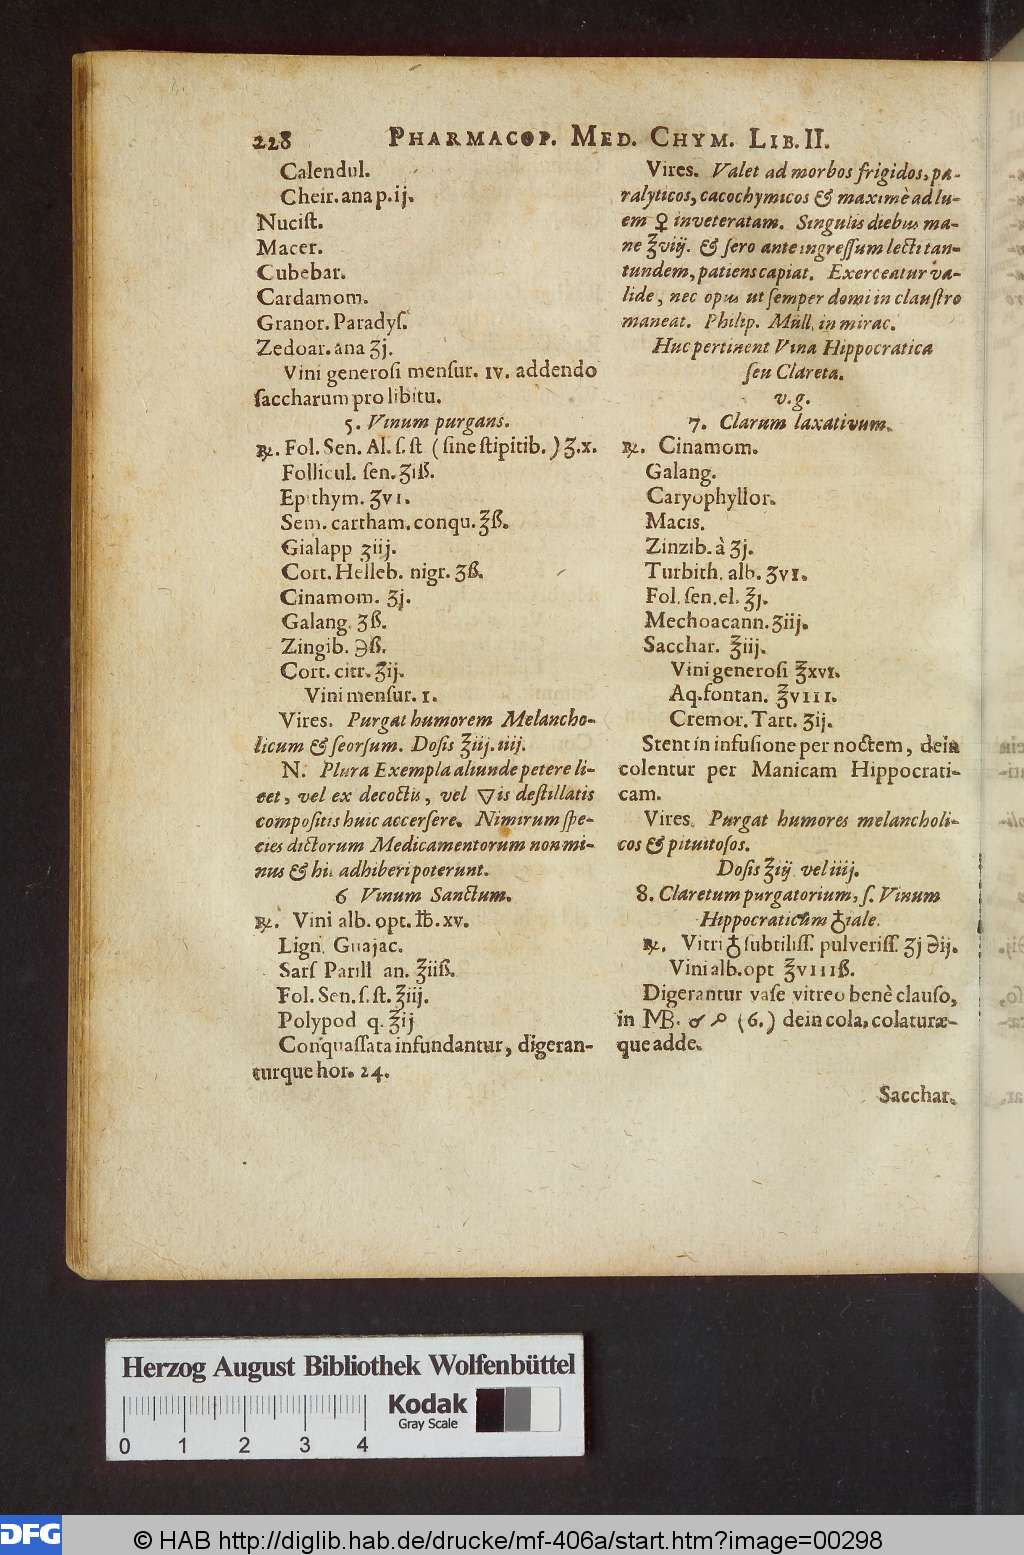 228 PHARMACOP. MED. CHYM. LIB. II.
Calendul.
Cheir. ana p. ij.
Nucist.
Macer.
Cubebar.
Cardamom.
Granor. Paradyſ.
Zedoar. ana ʒj.
Vini generoſi menſur. IV. addendo
ſaccharum pro libitu.
5. Vinum purgans.
℞. Fol. Sen. Al. ſ. ſt (ſine ſtipitib.) ʒ. x.
Follicul. ſen. ʒiß.
Epithym. ʒVI.
Sem. cartham. conqu. ℥ß.
Gialapp ʒiij.
Cort. Helleb. nigr. ʒß.
Cinamom. ʒj.
Galang. ʒß.
Zingib. ℈ß.
Cort. citr. ʒij.
Vini menſur. I.
Vires. Purgat humorem Melancho-
licum & ſeorſum. Doſis ℥iij. iiij.
N. Plura Exempla aliunde petere li-
cet, vel ex decoctis, vel ▽is deſtillatis
compoſitis huic accerſere. Nimirum ſpe-
cies dictorum Medicamentorum non mi-
nus & hic adhiberi poterunt.
6 Vinum Sanctum.
℞. Vini alb. opt. ℔. xv.
Lign. Guajac.
Sarſ Parill an. ℥iiß.
Fol. Sen. ſ. ſt. ℥iij.
Polypod q. ℥ij
Conquaſſata infundantur, digeran-
turque hor. 24.
Vires. Valet ad morbos frigidos, pa-
ralyticos, cacochymicos & maximè ad lu-
em ♀ inveteratam. Singulis diebus ma-
ne ℥viij. & ſero ante ingreſſum lecti tan-
tundem, patiens capiat. Exerceatur va-
lide, nec opus ut ſemper domi in clauſtro
maneat. Philip. Müll. in mirac.
Huc pertinent Vina Hippocratica
ſeu Clareta.
v. g.
7. Clarum laxativum.
℞. Cinamom.
Galang.
Caryophyllor.
Macis.
Zinzib. à ʒj.
Turbith. alb. ʒVI.
Fol. ſen. el. ℥j.
Mechoacann. ʒiij.
Sacchar. ℥iij.
Vini generoſi ℥xvi.
Aq. fontan. ℥VIII.
Cremor. Tart. ʒij.
Stent in infuſione per noctem, dein
colentur per Manicam Hippocrati-
cam.
Vires. Purgat humores melancholi-
cos & pituitoſos.
Doſis ℥iij vel iiij.
8. Claretum purgatorium, ſ. Vinum
Hippocraticum ♁iale.
℞. Vitri ♁ ſubtiliſſ. pulveriſſ. ʒj ℈ij.
Vini alb. opt ℥VIIIß.
Digerantur vaſe vitreo benè clauſo,
in MB. (6.) dein cola, colaturæ-
que adde.
Sacchar.
Herzog August Bibliothek Wolfenbüttel
Kodak
Gray Scale
0 1 2 3 4
DFG
© HAB http://diglib.hab.de/drucke/mf-406a/start.htm?image=00298